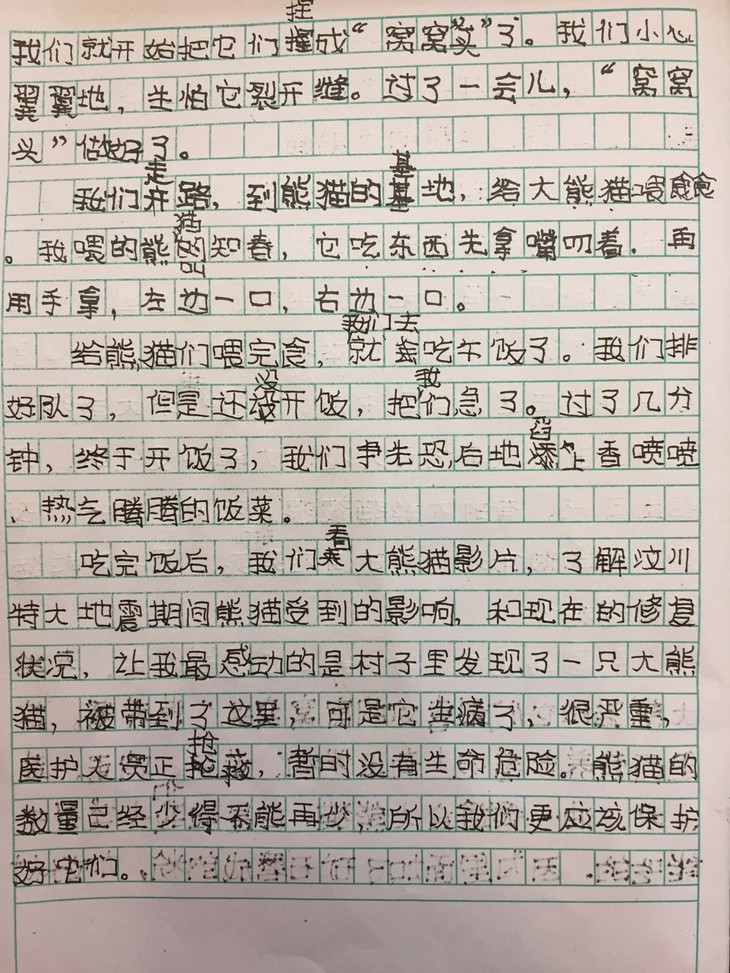 我们就开始把它们捏成“窝窝头”了。我们小心
翼翼地，生怕它裂开缝。过了一会儿，“窝窝
头”做好了。
我们走路，到熊猫的基地，给大熊猫喂食
。我喂的熊猫叫知春，它吃东西先拿嘴叼着，再
用手拿，左边一口，右边一口。
给熊猫们喂完食，我们就去吃午饭了。我们排
好队了，但是还没开饭，把我们急了。过了几分
钟，终于开饭了，我们争先恐后地舀上香喷喷
、热气腾腾的饭菜。
吃完饭后，我们看大熊猫影片，了解汶川
特大地震期间熊猫受到的影响，和现在的修复
状况，让我最感动的是村子里发现了一只大熊
猫，被带到了这里，可是它生病了，很严重，
医护人员正抢救，暂时没有生命危险。熊猫的
数量已经少得不能再少，所以我们更应该保护
好它们。